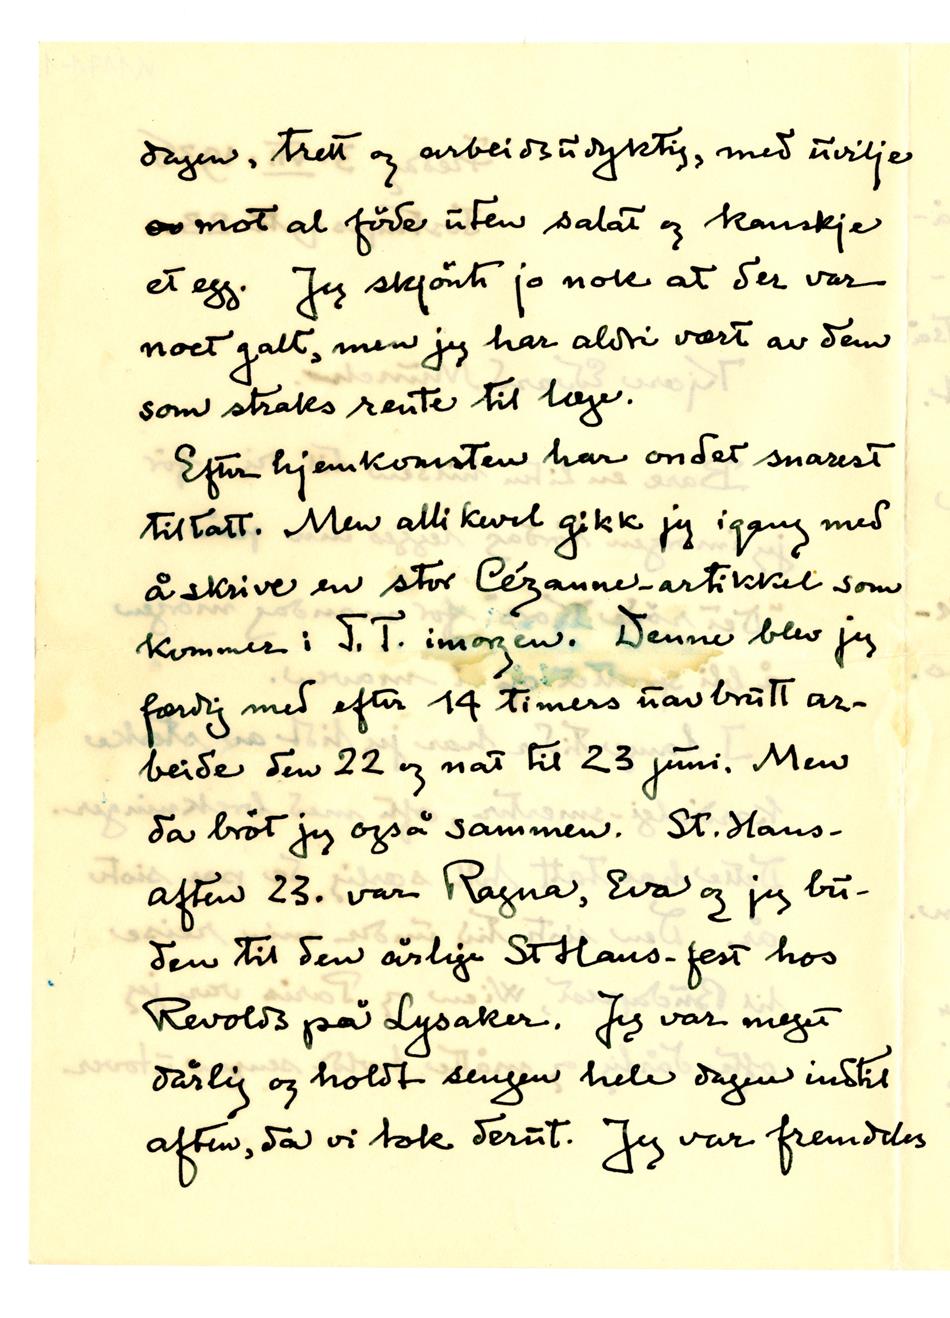 dagen, trett og arbeidsudyktig, med uvilje
mot al föde uten salat og kanskje
et egg. Jeg skjönte jo nok at der var
noet galt, men jeg har aldri vært av dem
som straks rente til læge.
Efter hjemkomsten har ondet snarest
tiltatt. Men allikevel gikk jeg igang med
å skrive en stor Cézanne-artikkel som
kommer i T.T. imorgen. Denne blev jeg
færdig med efter 14 timers uavbrutt ar-
beide den 22 og nat til 23 juni. Men
da bröt jeg også sammen. St. Hans-
aften 23. var Ragna, Eva og jeg bu-
den til den årlige St Hans-fest hos
Revolds på Lysaker. Jeg var meget
dårlig og holdt sengen hele dagen indtil
aften, da vi tok derut. Jeg var fremdeles